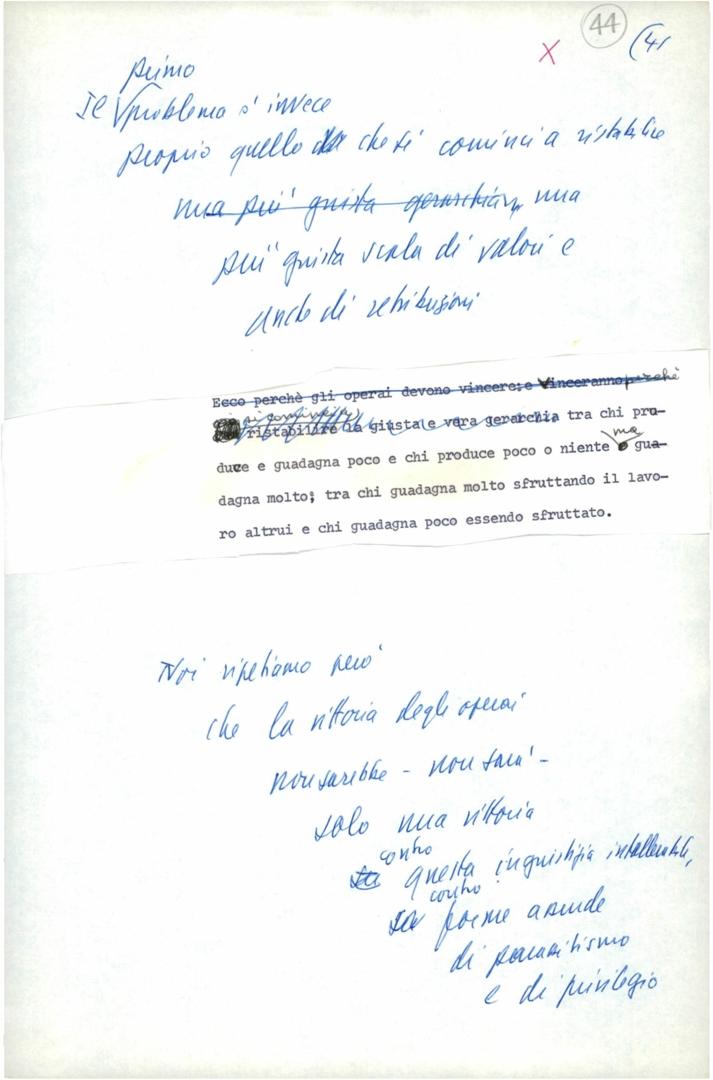 44
(41
X
primo
Il problema è invece
proprio quello che si cominci a ristabilire
una più giusta gerarchia, una
più giusta scala di valori e
anche di retribuzioni
Ecco perchè gli operai devono vincere; e vinceranno perchè
ristabilire la giusta e vera gerarchia tra chi pro-
ma
duce e guadagna poco e chi produce poco o niente e gua-
dagna molto; tra chi guadagna molto sfruttando il lavo-
ro altrui e chi guadagna poco essendo sfruttato.
Noi ripetiamo però
che la vittoria degli operai
non sarebbe - non sarà -
solo una vittoria
contro
questa ingiustizia intollerabile,
contro
forme assurde
di parassitismo
e di privilegio